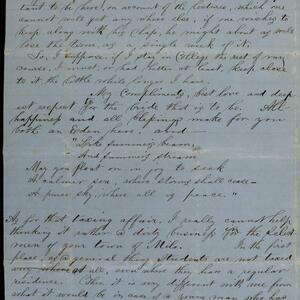 tant to be here, on account of the lectures, which one
cannot well get any where else, if one wishes to
keep along with his Class, he might about as well
lose the term, as a single week of it.
So, I suppose if I stay in College the rest of my
course, I must, or had better at least, keep close
to it, the little while longer I have.
My Compliments, best love and deep-
est respect for the bride that is to be. All
happiness and all blessings make for you
both an Eden here, and
"Like summer's beam,
And summer's stream
May you float on in joy to seek
A calmer sea, where storms shall cease—
A purer sky, where all is peace."
As for that taxing affair, I really cannot help
thinking it rather a dirty business for the Select-
men of your town of Milo. In the first
place, as a general thing Students are not taxed
any where at all, even where they have a regular
residence. Then it is very different with one from
what it would be in case of a young man who has